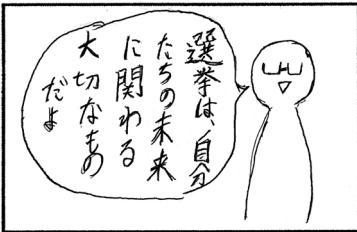 選挙は、自分
たちの未来
に関わる
大切なもの
だよ